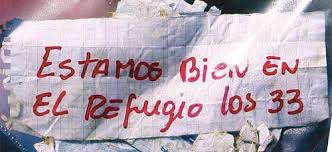 ESTAMOS BIEN EN
EL REFUGIO LOS 33